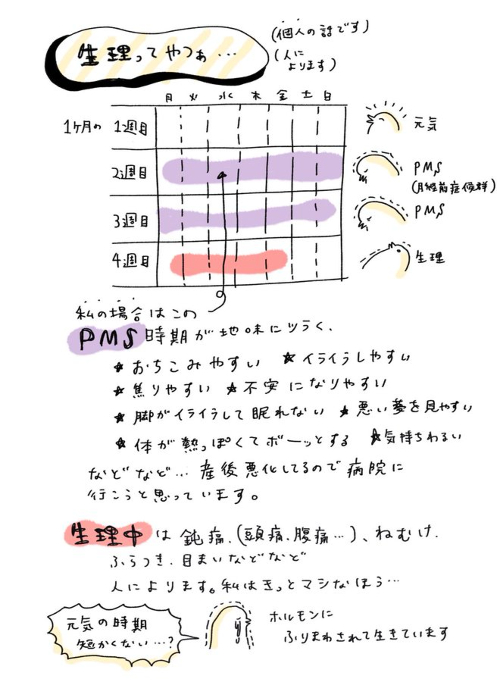 生理ってやつぁ…
(個人の話です)
(人に
よります)
月 火 水 木 金 土 日
1ヶ月の 1週目
元気
2週目
PMS
(月経前症候群)
3週目
PMS
4週目
生理
私の場合はこの
PMS時期が地味にツラく、
★おちこみやすい ★イライラしやすい
★焦りやすい ★不安になりやすい
★脚がイライラして眠れない ★悪い夢を見やすい
★体が熱っぽくてボーッとする ★気持ちわるい
などなど… 産後悪化してるので病院に
行こうと思っています。
生理中は鈍痛.(頭痛.腹痛…)、ねむけ.
ふらつき.目まいなどなど
人によります。私はきっとマシなほう…
元気の時期
短かくない…?
ホルモンに
ふりまわされて生きています